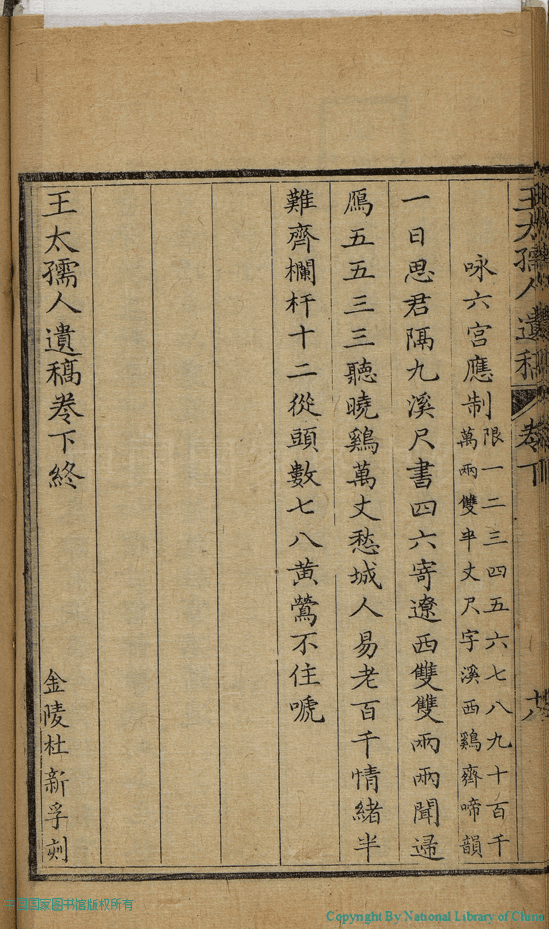 王太孺人遺稿 卷下
咏六宫應制 限一二三四五六七八九十百千
萬兩雙半丈尺字溪西鷄齊啼韻
一日思君隔九溪尺書四六寄遼西雙雙兩兩聞歸
鴈五五三三聽曉鷄萬丈愁城人易老百千情緒半
難齊欄杆十二從頭數七八黄鶯不住嗁
王太孺人遺稿卷下終
金陵杜新孚刻
中国国家图书馆版权所有
Copyright By National Library of China